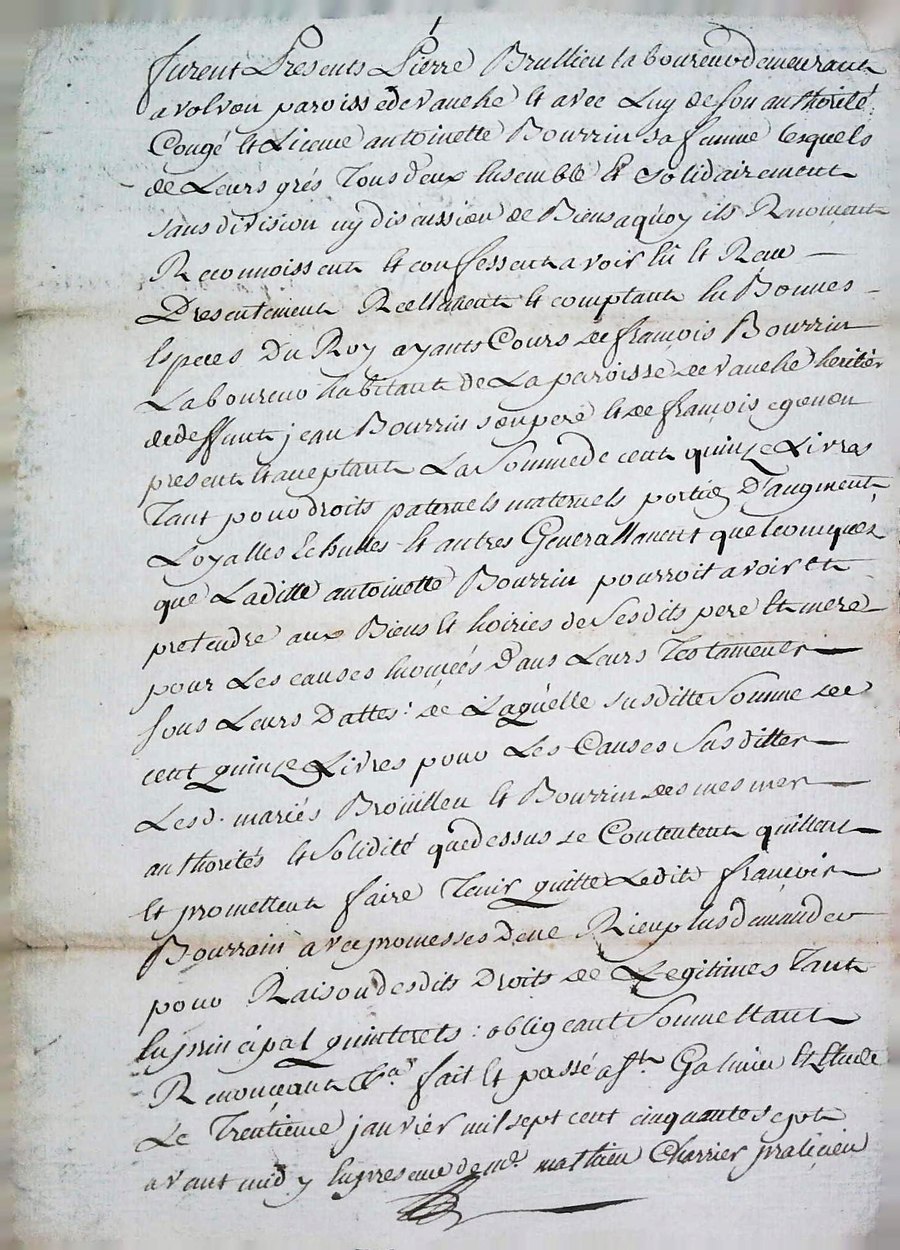 furent Presents Pierre Brullieu laboureur demeurant
a volvon paroisse de vanche et avec Luy de son authorité
Congé et Licence antoinette Bourrin sa femme lesquels
de Leurs grés Tous deux Ensemble Et Solidairement
sans division ny discussion de Biens aquoy ils Renoncent
Reconnoissent et confessent avoir Eû et Receu
Presentement Reellement et comptant En Bonnes
Especes Du Roy ayants Cours de francois Bourrin
Laboureur habitant de La paroisse de vanche heritier
de deffunt jean Bourrin son pere et de francois
present et aceptant La Somme de cent quinze Livres
Tant pour droits paternels maternels portiõ D'augment
Loyalles Echuttes et autres Generallement quelconques
que Laditte antoinette Bourrin pourroit avoir et
pretendre aux Biens et hoiries de Sesdits pere et mere
pour Les causes Enoncées Dans Leurs Testaments
sous Leurs Dattes : de Laquelle susditte Somme de
cent quinze Livres pour Les Causes Susdittes
Lesd. mariés Brouilleu et Bourrin des mesmes
authorités et Solidité que dessus se Contentent quittent
et promettent faire Tenir quitte Ledit francois
Bourrain avec promesses de ne Rien plus demander
pour Raison desdits Droits de Legitimes Tant
En principal qu'interets : obligeant Soumettant
Renonceant &a fait et passé a st Galmier et Etude
Le Trentieme janvier mil sept cent cinquante sept
avant midy En presence de me. mathieu Charrier praticien